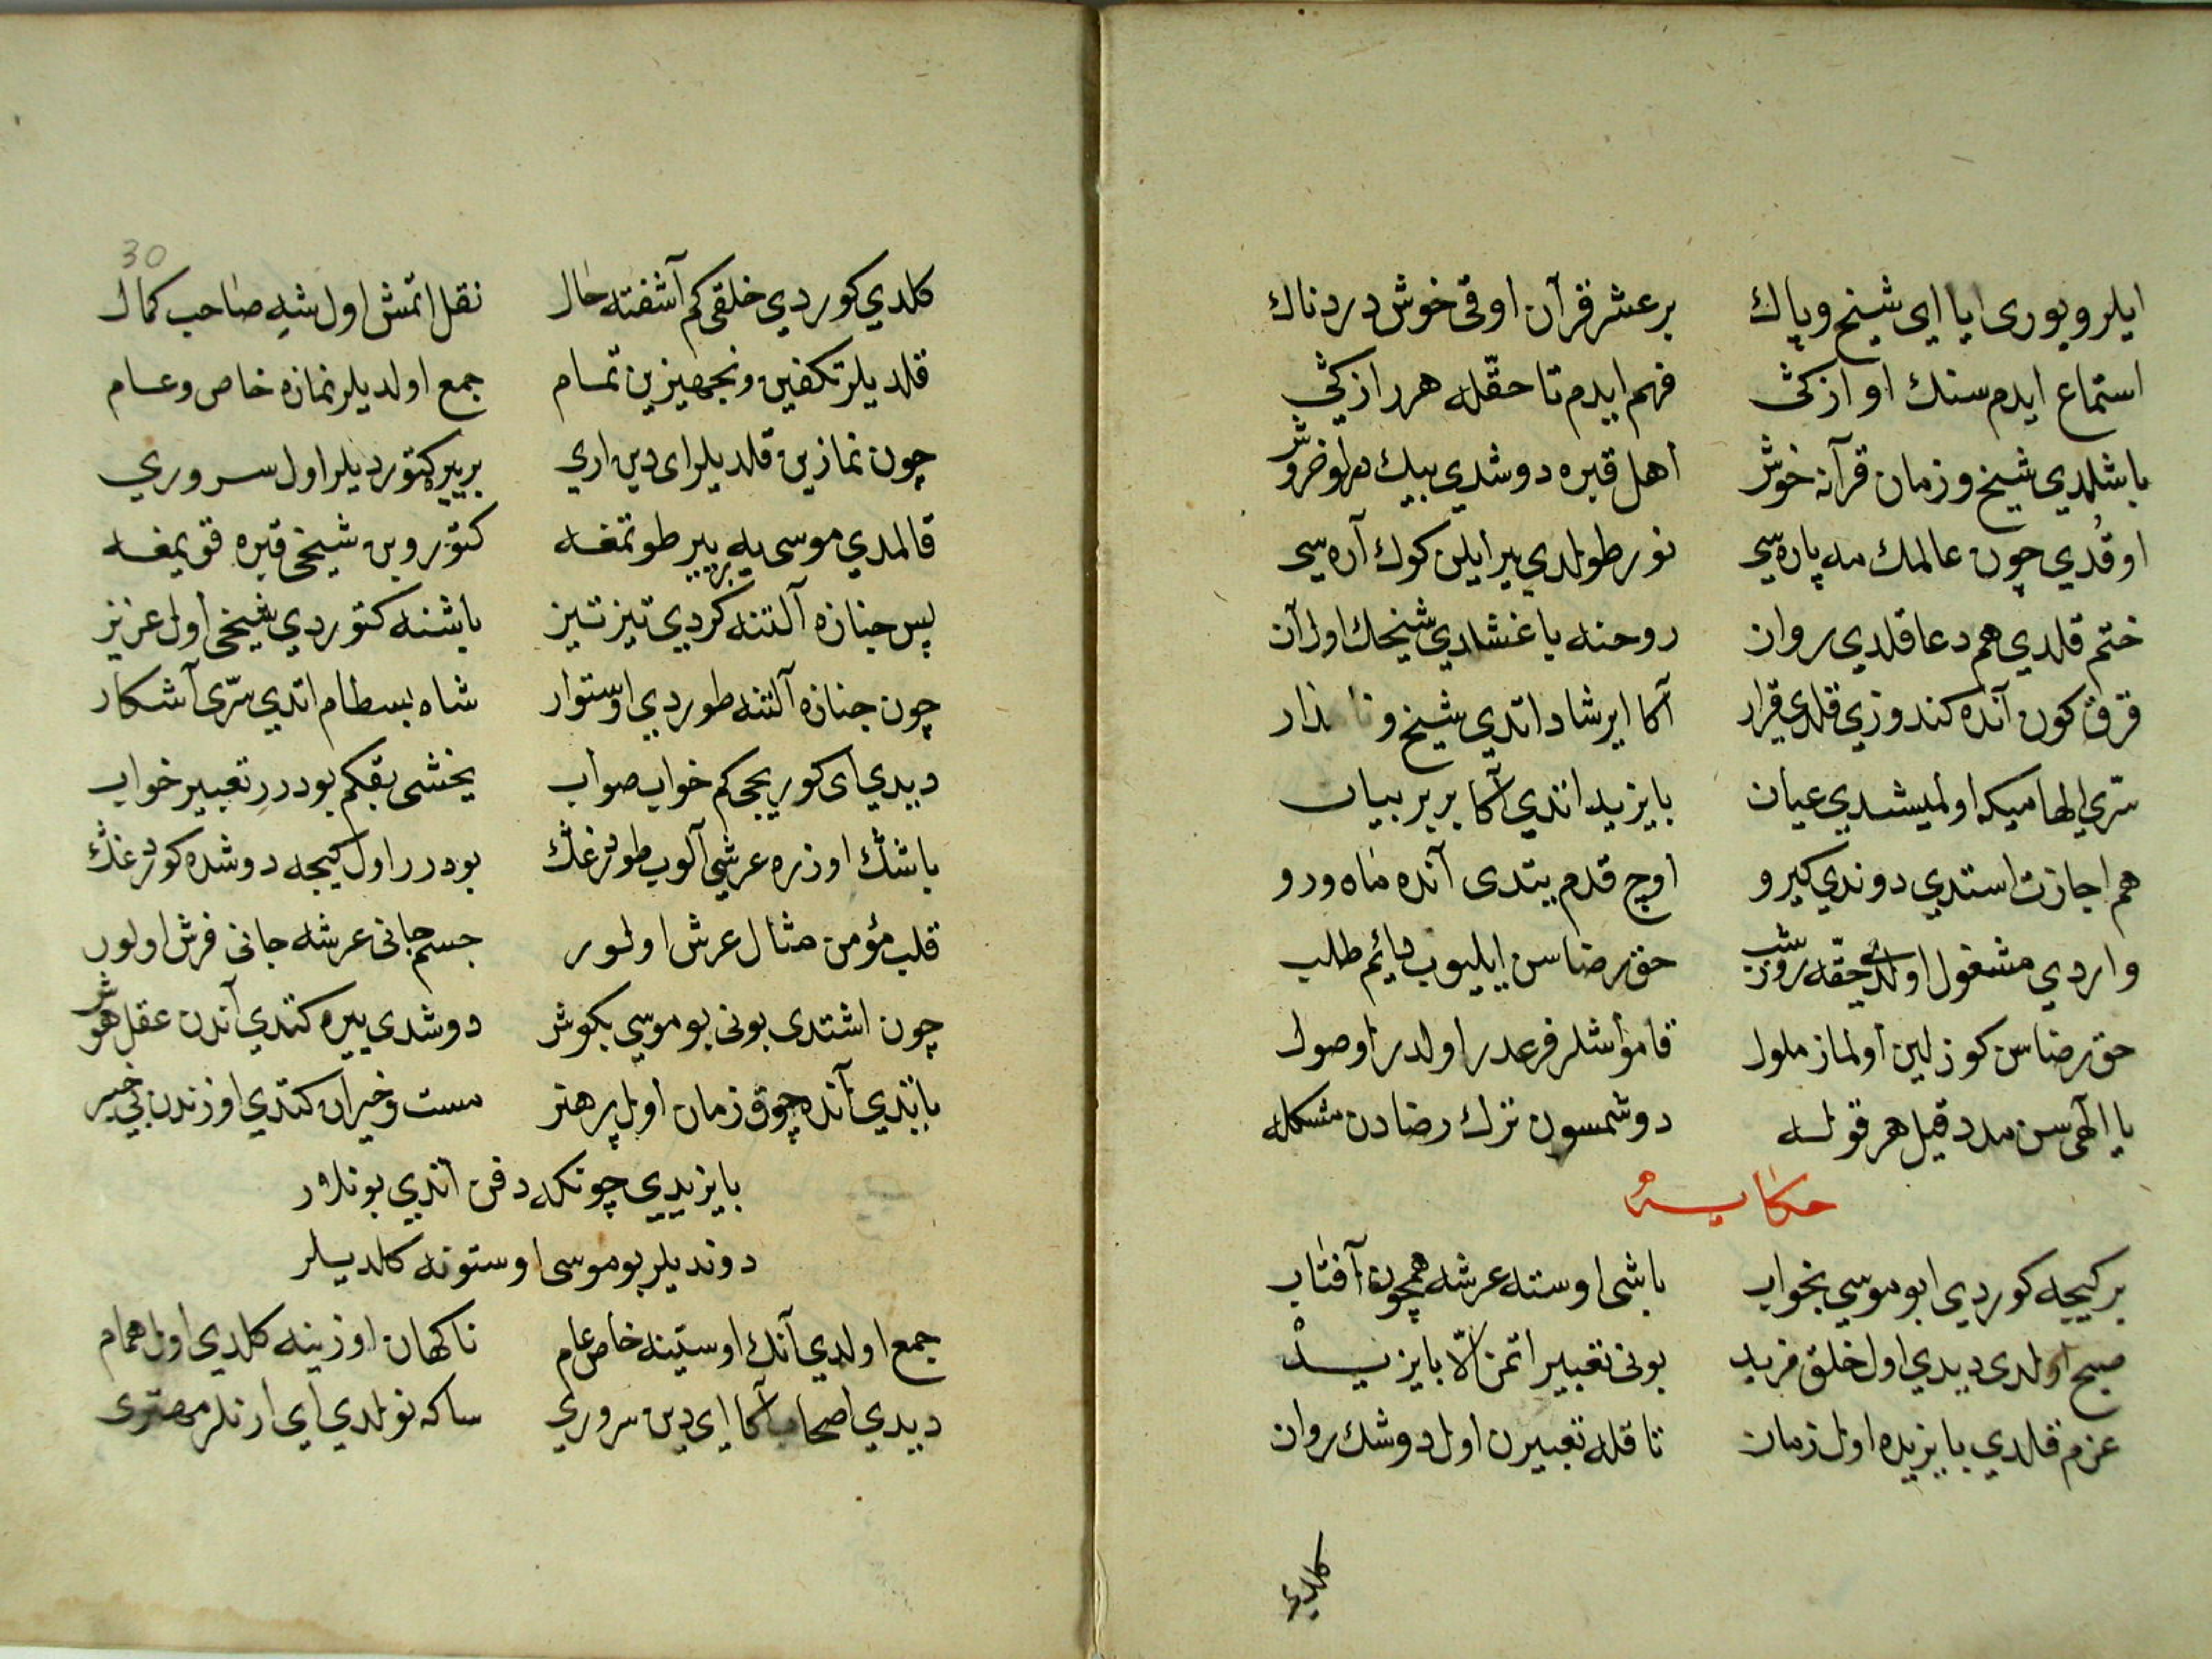 ايلرو يورى ايا اى شيخ وپاك بر عشر قرآن اوقى خوش دردناك
استماع ايدم سنك اوازكى فهم ايدم تا حقّله هر رازكى
باشلدي شيخ وزمان قرآنه خوش اهل قبره دوشدي بيك
اوقدي چون عالمك مه پاره سي نور طولدي يير ايلن كوك آره سى
ختم قلدي هم دعا قلدي روان روحنه باغشلدي شيخك اول آن
قرق كون آنده كندوزي قلدي قرار آكا ايرشاد اتدي شيخ
سرّي الهاميكه اولميشدي عيان بايزيد اتدي آكا بر بر بيان
هم اجازت استدي دوندي كيرو اوچ قدم بيتدى آنده ماه ورو
واردي مشغول اولدي حقّه روز شب حق رضاسن ايليوب دايم طلب
حق رضاسن كوزلين اولماز ملول قامو اشلر فرعدر اولدر اوصول
يا الهى سن مدد قيل هر قوله دوشمسون ترك رضادن مشكله
حكايه
بر كيجه كوردي ابو موسي بخواب باشى اوسته عرشه همچون آفتاب
صبح اولدى ديدي اول خلق فريد بونى تعبير اتمز الّا بايزيد
عزم قلدي بايزيده اول زمان تا قله تعبيرن اول دوشك روان
كلدي
30
كلدي كوردي خلقى كم آشفته حال نقل اتمش اول شه صاحب كمال
قلديلر تكفين وتجهيزين تمام جمع اولديلر نمازه خاص وعام
چون نمازين قلديلر اى دين اري بر ييره كتورديلر اول سروري
قالمدي موسى يه بر يير طوتمغه كتوروبن شيخى قبره قويمغه
پس جنازه آلتنه كردي تيز تيز باشنه كتوردي شيخى اول عزيز
چون جنازه آلتنه طوردي اوستوار شاه بسطام اتدي سرّى آشكار
ديدي اى كوريجى كم خواب صواب يخشى بقكم بودرر تعبير خواب
باشڭ اوزره عرشي آلوب طوتدغڭ بودرر اول كيجه دوشده كوردغڭ
قلب مؤمن مثال عرش اولور جسم جانى عرشه جانى فرش اولور
چون اشتدى بونى بو موسي بكوش دوشدى ييره كتدي آندن عقل هوش
ياتدي آنده چوق زمان اول پر هنر مست وحيران كتدي اوزندن بى خبر
بايزيدي چونكه دفن اتدي بونلار
دونديلر بو موسى اوستونه كلديلر
جمع اولدي آنك اوستينه خاص عام ناكهان اوزينه كلدي اول همام
ديدي اصحاب آكا اي دين سروري ساكه نولدي اي ارنلر مهترى